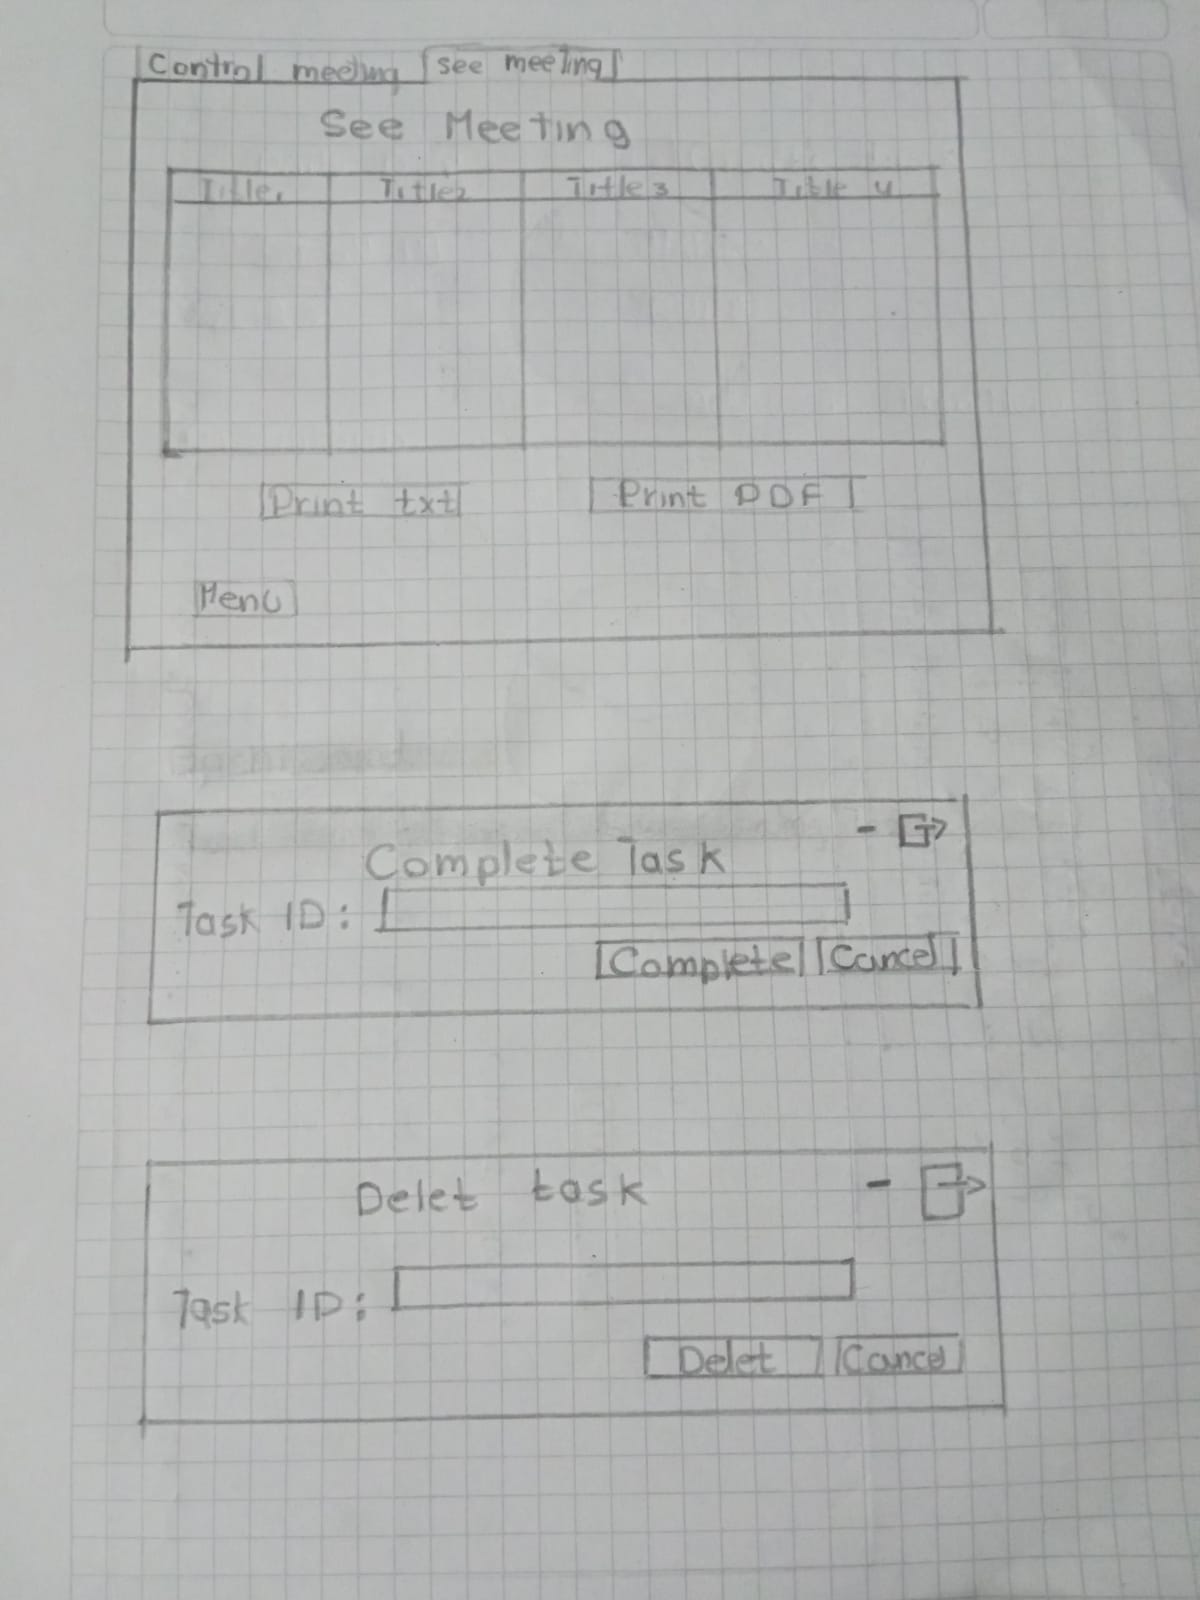 Control meeting see meeting
See Meeting
Title1 Title2 Title3 Title 4
Print txt Print PDF
Menu
Complete Task
Task ID:
Complete Cancel
Delet task
Task ID:
Delet Cancel